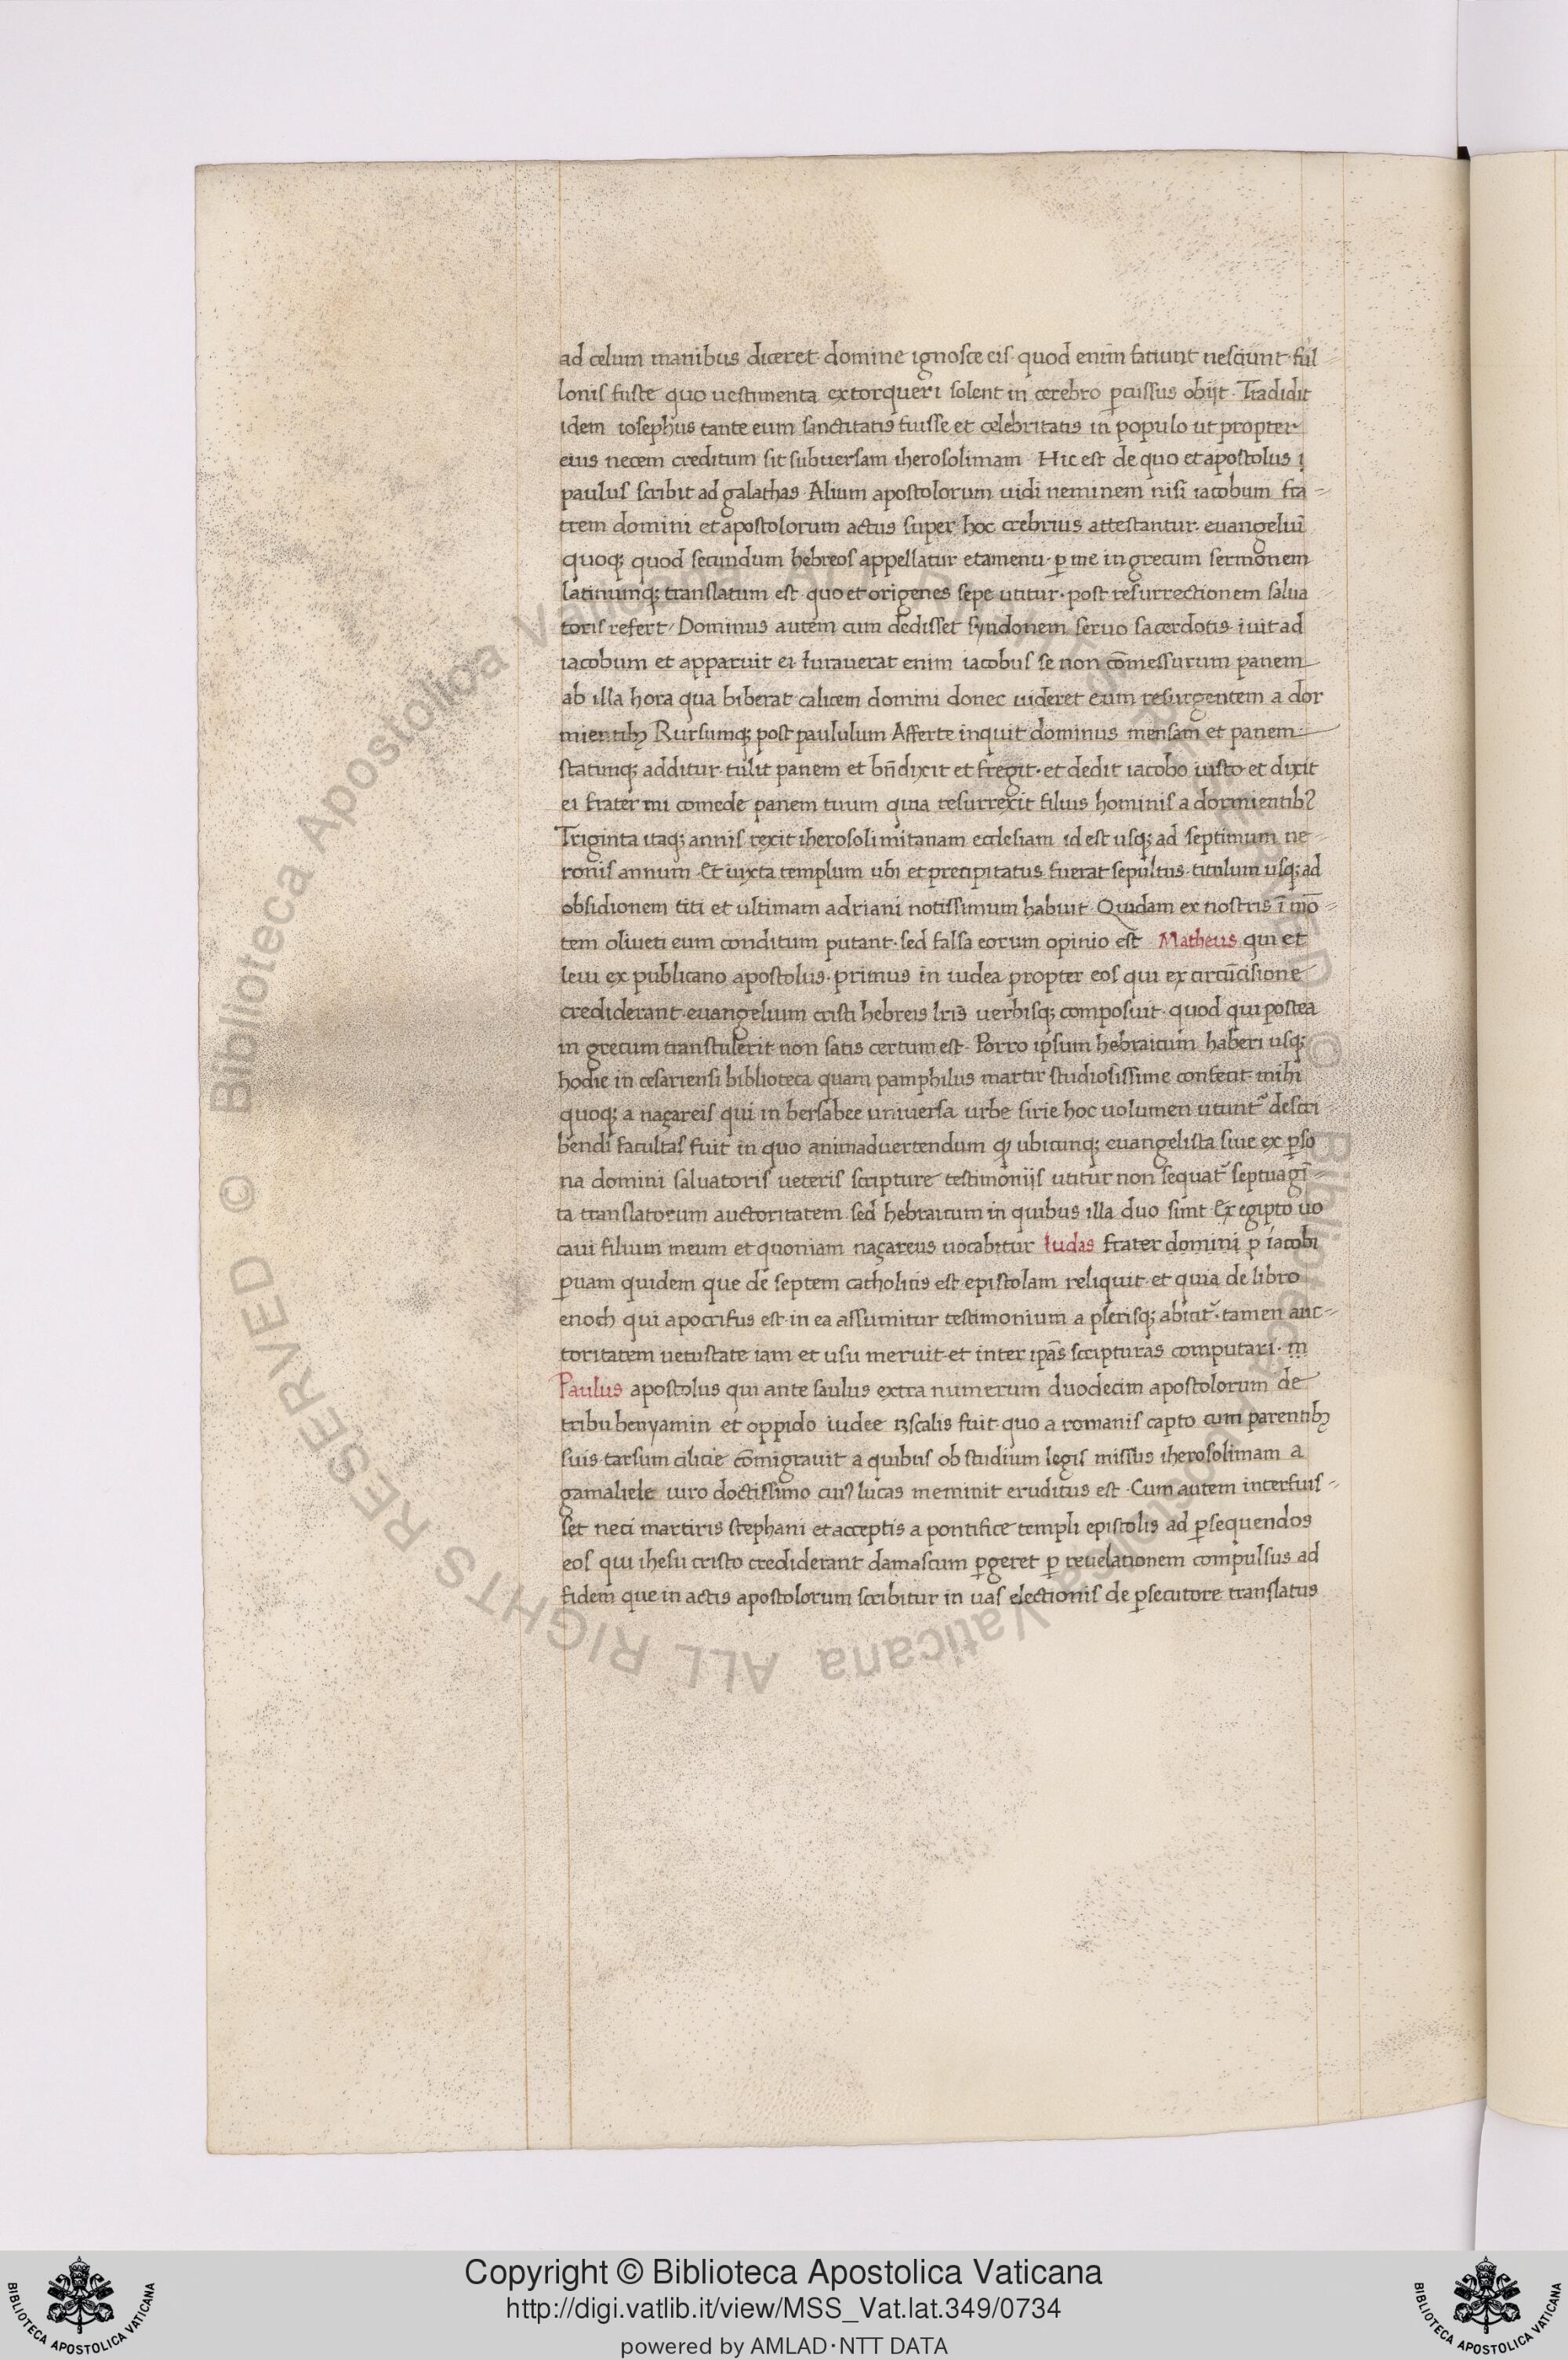 ad celum manibus diceret· domine ignosce eis· quod enim faciunt nesciunt· ful
lonis fuste quo uestimenta extorqueri solent in cerebro ꝑcussus obijt· Tradidit
idem iosephus tante eum sanctitatis fuisse et celebritatis in populo ut propter
eius necem creditum sit subuersam iherosolimam· Hic est de quo et apostolus
paulus scribit ad galathas· Alium apostolorum uidi neminem nisi iacobum fra=
trem domini et apostolorum actus super hoc crebrius attestantur· euangeliũ
quoq; quod secundum hebreos appellatur et a me nu· ꝑ me in grecum sermonem
latinumq; translatum est· quo et origenes sepe utitur· post resurrectionem salua
toris refert/ Dominus autem cum dedisset syndonem seruo sacerdotis iuit ad
iacobum et apparuit ei· Iurauerat enim iacobus se non cõmessurum panem
ab illa hora qua biberat calicem domini donec uideret eum resurgentem a dor
mientibꝫ Rursumq; post paululum Afferte inquit dominus mensam et panem·
statimq; additur· tulit panem et bñdixit et fregit· et dedit iacobo iusto et dixit
ei frater mi comede panem tuum quia resurrexit filius hominis a dormientibꝰ
Triginta itaq; annis rexit iherosolimitanam ecclesiam id est usq; ad septimum ne=
ronis annum· Et iuxta templum ubi et precipitatus fuerat sepultus· titulum usq; ad
obsidionem titi et ultimam adriani notissimum habuit· Quidam ex nostris ĩ mõ=
tem oliueti eum conditum putant· sed falsa eorum opinio est· Matheus qui et
leui ex publicano apostolus· primus in iudea propter eos qui ex circũcisione
crediderant· euangelium cristi hebreis lrıs uerbisq; composuit· quod qui postea
in grecum transtulerit non satis certum est· Porro ipsum hebraicum haberi usq;
hodie in cesariensi biblioteca quam pamphilus martir studiosissime confecit· mihi
quoq; a naçareis qui in bersabee uniuersa urbe sirie hoc uolumen utunt᷑ descri
bendi facultas fuit in quo animaduertendum ꝙ ubicunq; euangelista siue ex ꝑso
na domini saluatoris ueteris scripture testimonijs utitur non sequat᷑ septuagĩ=
ta translatorum auctoritatem sed hebraicum in quibus illa duo sunt· Ex egipto uo
caui filium meum et quoniam naçareus uocabitur Iudas frater domini ꝑ iacobi
ꝑuam quidem que de septem catholicis est epistolam reliquit· et quia de libro
enoch qui apocrifus est· in ea assumitur testimonium a plerisq; abicit᷑· tamen auc=
toritatem uetustate iam et usu meruit· et inter ipãs scripturas computari·
Paulus apostolus qui ante saulus extra numerum duodecim apostolorum de
tribu benyamin et oppido iudee scalis fuit quo a romanis capto cum parentibꝫ
suis tarsum cilicie cõmigrauit a quibus ob studium legis missus iherosolimam a
gamaliele uiro doctissimo cuiꝰ lucas meminit eruditus est· Cum autem interfuis=
set neci martiris stephani et acceptis a pontifice templi epistolis ad ꝑsequendos
eos qui ihesu cristo crediderant damascum ꝑgeret ꝑ reuelationem compulsus ad
fidem que in actis apostolorum scribitur in uas electionis de ꝑsecutore translatus
© Biblioteca Apostolica Vaticana ALL RIGHTS RESERVED
Copyright © Biblioteca Apostolica Vaticana
http://digi.vatlib.it/view/MSS_Vat.lat.349/0734
powered by AMLAD·NTT DATA
BIBLIOTECA APOSTOLICA VATICANA
BIBLIOTECA APOSTOLICA VATICANA